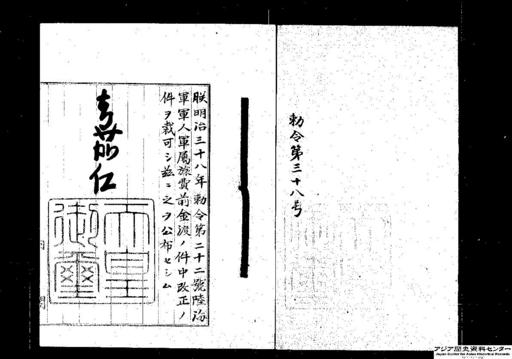 勅令第三十八号
朕明治三十八年勅令第二十二號陸海
軍軍人軍属旅費前金渡ノ件中改正ノ
件ヲ裁可シ茲ニ之ヲ公布セシム
嘉仁
天皇
御璽
アジア歴史資料センター
Japan Center for Asian Historical Records